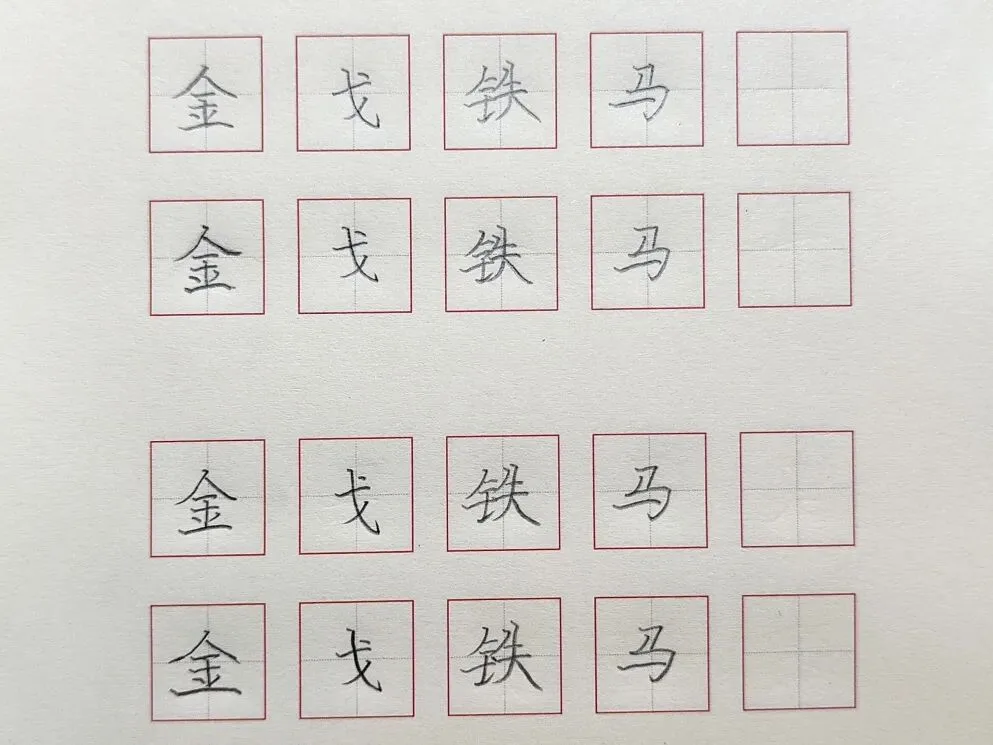 金戈铁马
金戈铁马
金戈铁马
金戈铁马